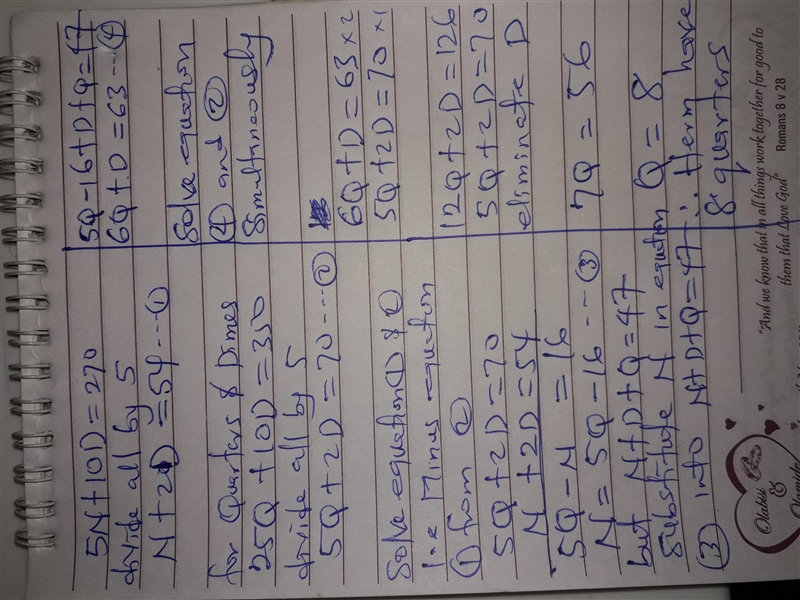 5N+10D=270
divide all by 5
N+2D=54 --- ①
for Quarters & Dimes
25Q+10D=350
divide all by 5
5Q+2D=70 --- ②
Solve equation ① & ②
I.e Minus equation
① from ②
5Q+2D=70
N+2D=54
5Q-N=16
N=5Q-16 --- ③
but N+D+Q=47
Substitute N in equation
③ into N+D+Q=47
5Q-16+D+Q=47
6Q+D=63 --- ④
Solve equation
④ and ②
Simultaneously
6Q+D=63×2
5Q+2D=70×1
12Q+2D=126
5Q+2D=70
eliminate D
7Q=56
Q=8
∴ Herm have
8 quarters
"And we know that in all things work together for good to
them that Love God"
Romans 8 v 28
&